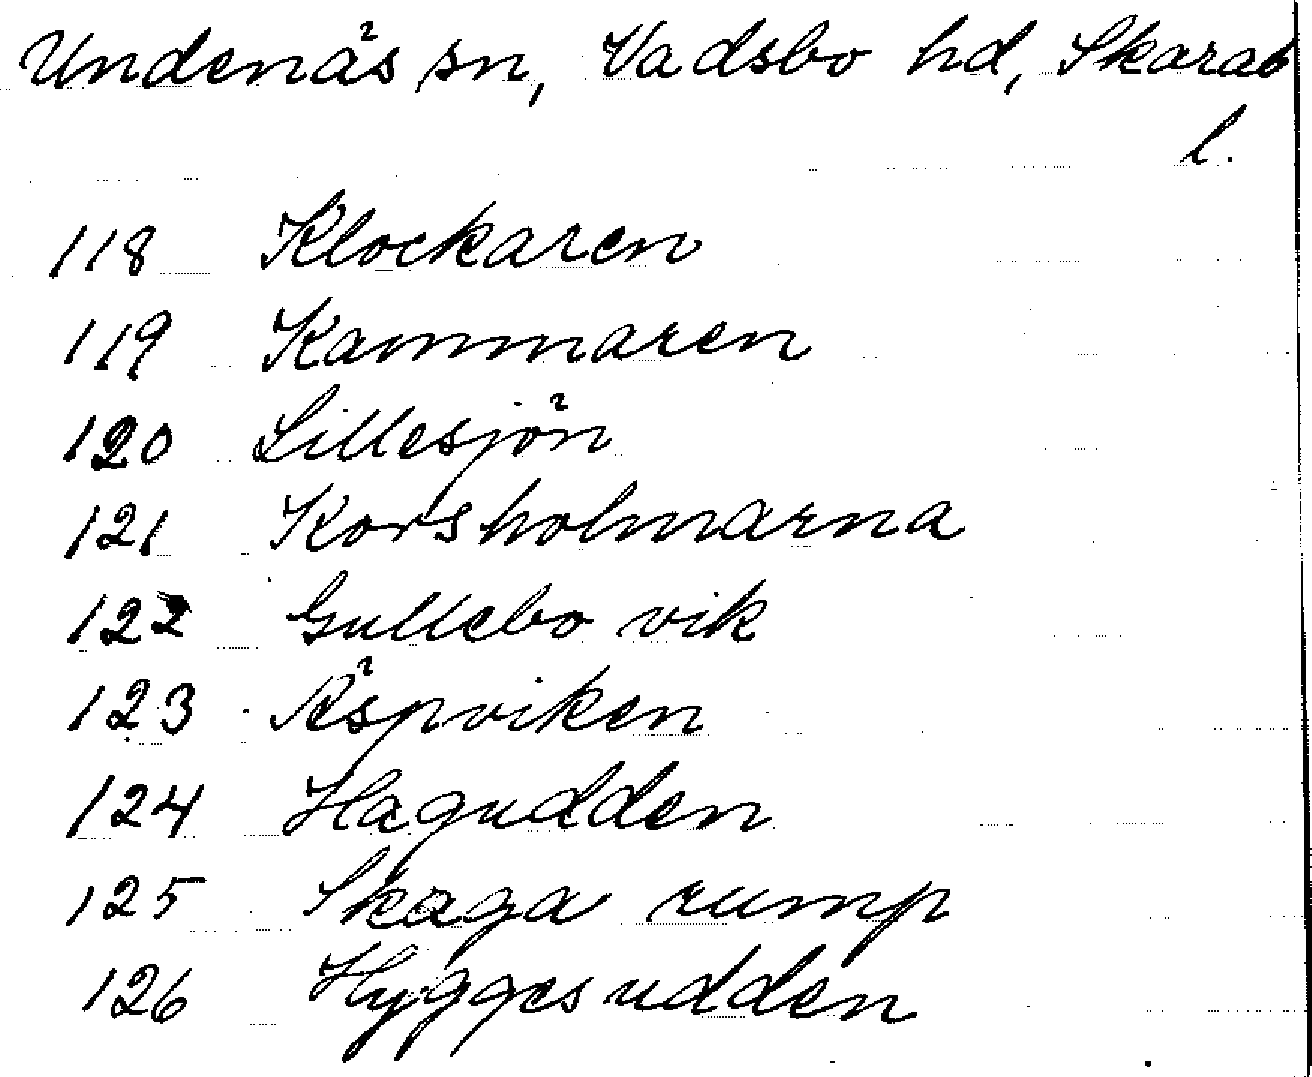 Undenäs sn, Vadsbo hd, Skarab
l.
118 Klockaren
119 Kammaren
120 Lillesjön
121 Korsholmarna
122 Gullebo vik
123 Äspviken
124 Hagudden
125 Skaga rump
126 Hyggesudden